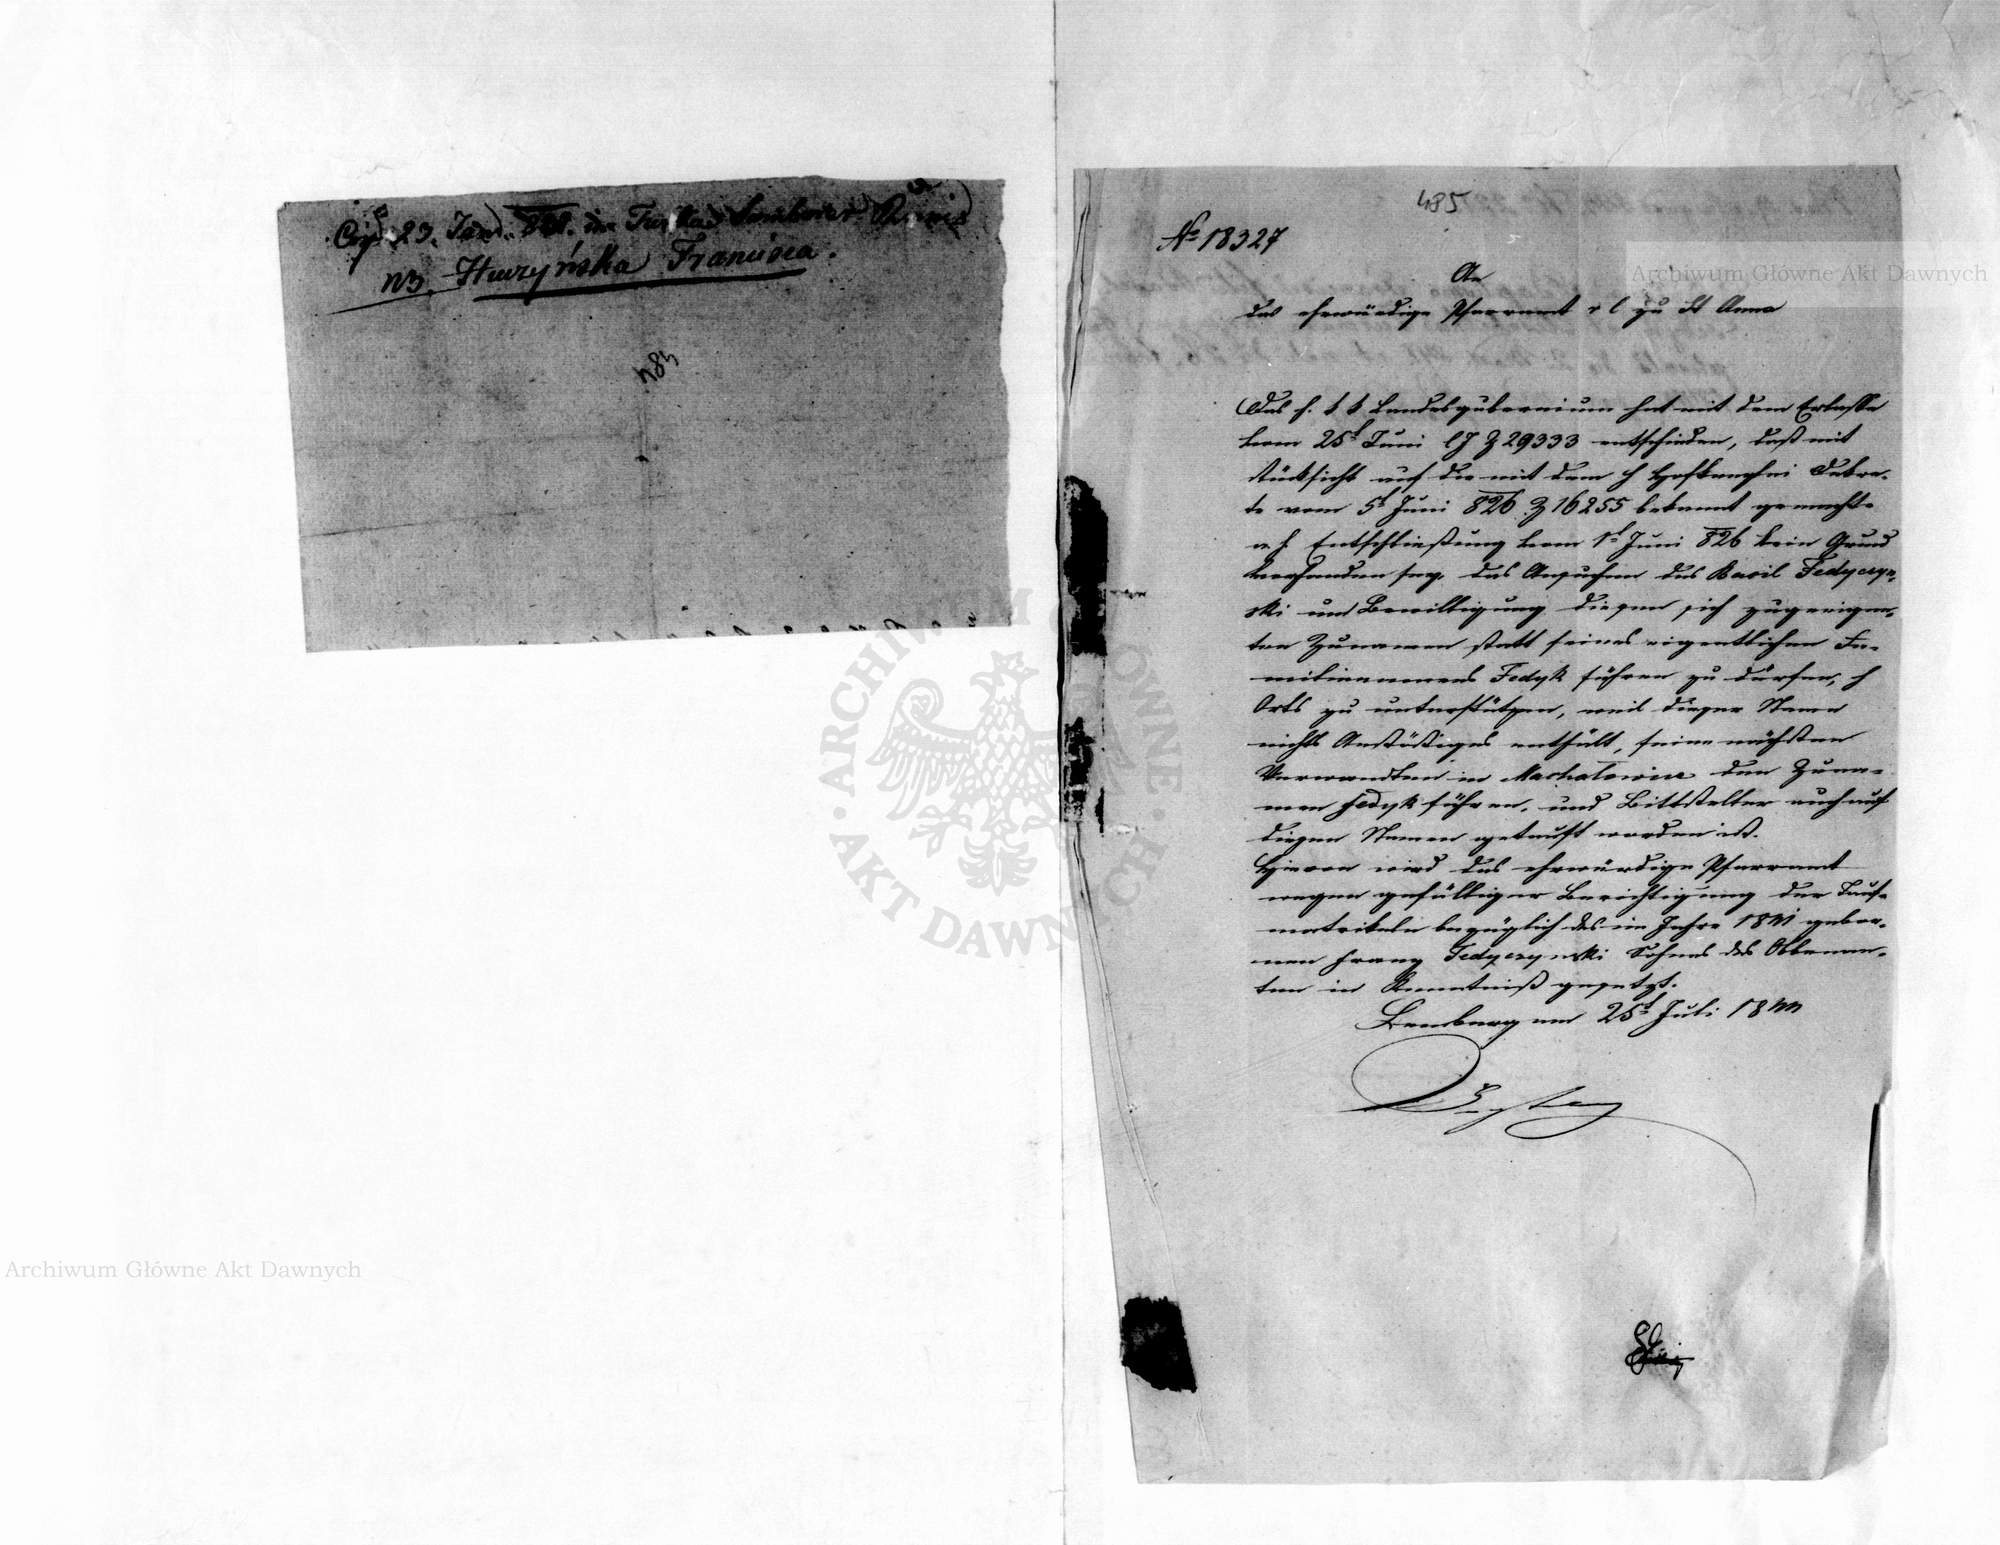 23. Jan. in Turka
N3. Huczyńska Francisca.
484
485
No 18327
An
das ehrwürdige Pfarramt r l zu St Anna
Das h. k k Landesgubernium hat mit dem Erlasse
vom 25t Juni l J Z 29333 entschieden, daß mit
Rücksicht auf die mit dem h Hofkanzlei Dekre-
te vom 5t Juni 826 Z 16255 bekannt gemachte
a. h Entschließung vom 1t Juni 826 kein Grund
vorhanden sey, das Ansuchen des Basil Fedyczyn-
ski um Bewilligung diesen sich zugeeigne-
ten Zunamen statt seines eigentlichen Fa-
miliennamens Fedyk führen zu dürfen, h
Orts zu unterstützen, weil dieser Name
nichts Anstößiges enthält, seine nächsten
Verwandten in den Zuna-
men Fedyk führen, und Bittsteller auch auf
diesen Namen getauft worden ist.
Hievon wird das ehrwürdige Pfarramt
wegen gefälliger Berichtigung der Tauf-
matrikeln bezüglich des im Jahre 1841 gebor-
nen Franz Fedyczynski Sohnes des Obbenan-
ten in Kenntniß gesetzt.
Lemberg am 25t Juli 1844
Archiwum Główne Akt Dawnych
Archiwum Główne Akt Dawnych
ARCHIWUM GŁÓWNE AKT DAWNYCH